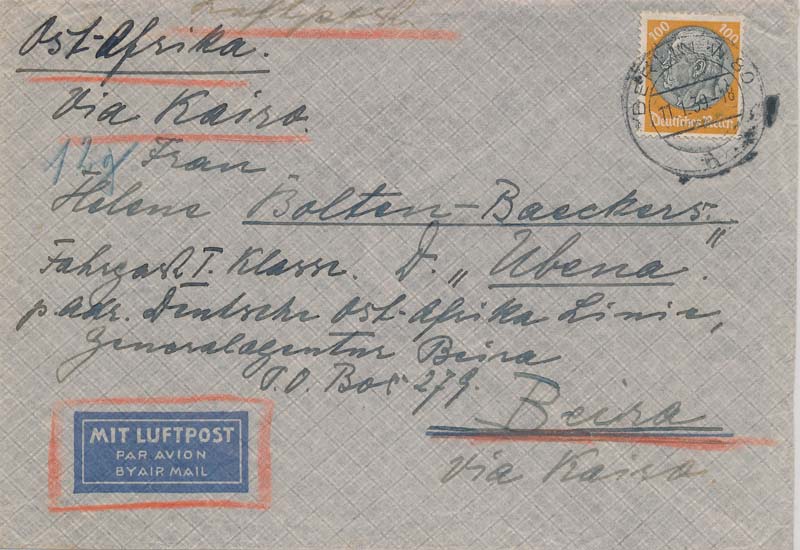 Luftpost
Ost-Afrika.
Via Kairo.
12g
Frau
Helene Bolten-Baeckers.
Fahrgast I. Klasse. D. „Ubena".
p adr. Deutsche Ost-Afrika Linie,
Generalagentur Beira
P.O. Box 279.
Beira
via Kairo.
100 100
Deutsches Reich
BERLIN W 80
11.1.39-18
MIT LUFTPOST
PAR AVION
BY AIR MAIL